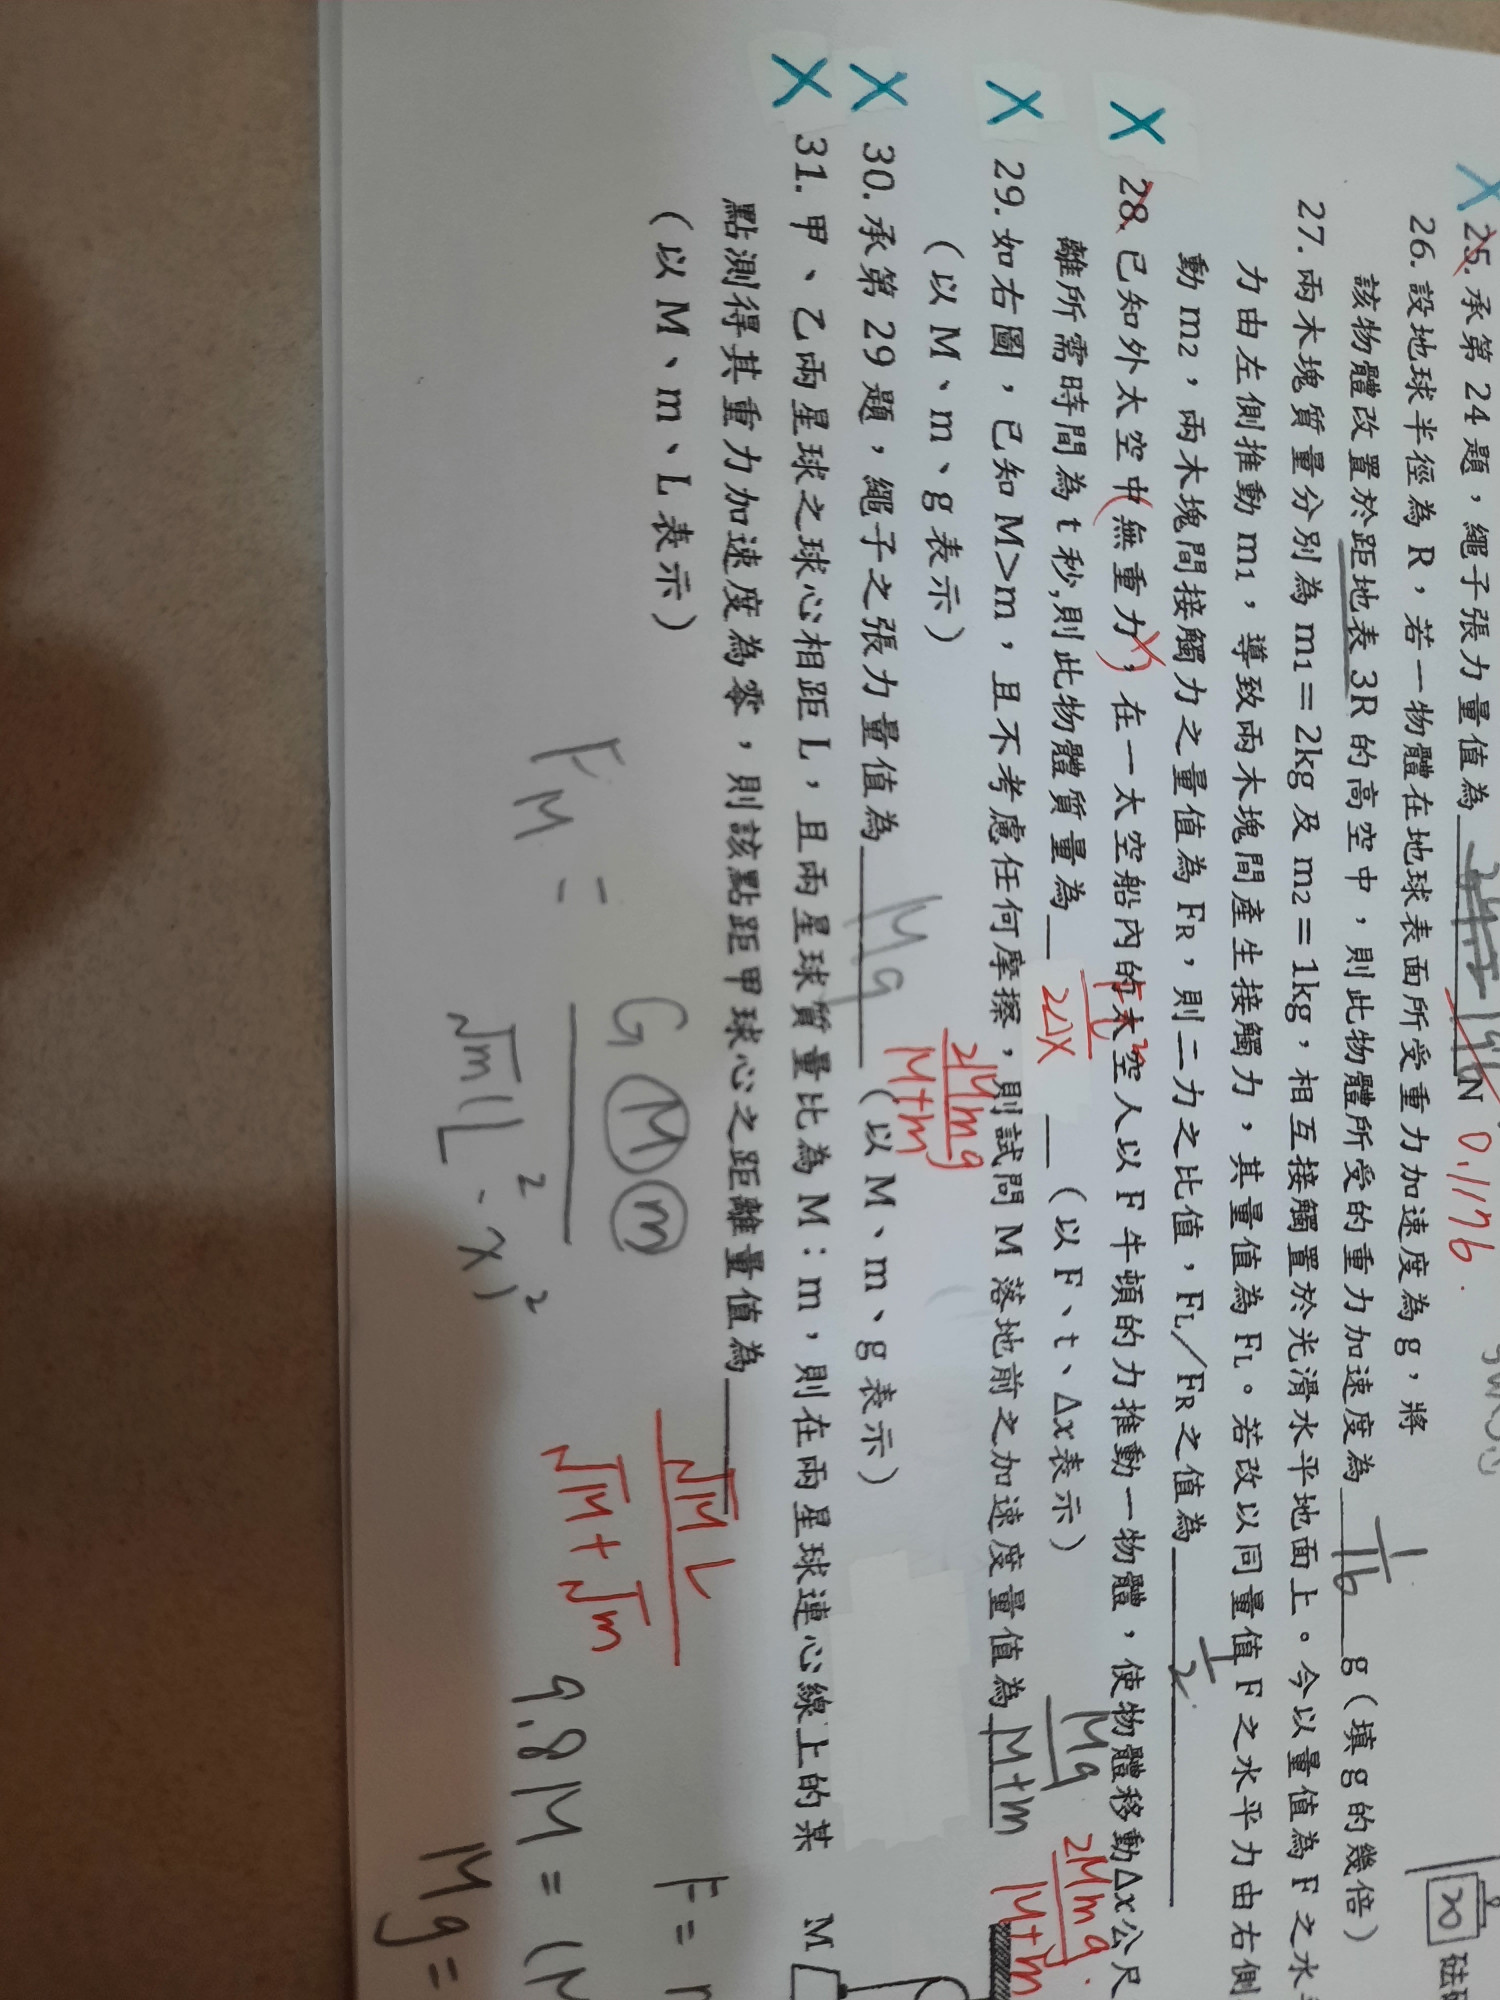 X 25. 承第 24 題，繩子張力量值為 N 0.1176.
26. 設地球半徑為 R，若一物體在地球表面所受重力加速度為 g，將
該物體改置於距地表 3R 的高空中，則此物體所受的重力加速度為 1/16 g（填 g 的幾倍）
27. 兩木塊質量分別為 m1＝2kg 及 m2＝1kg，相互接觸置於光滑水平地面上。今以量值為 F 之水
力由左側推動 m1，導致兩木塊間產生接觸力，其量值為 FL。若改以同量值 F 之水平力由右側
動 m2，兩木塊間接觸力之量值為 FR，則二力之比值，FL／FR 之值為 1/2
X 28. 已知外太空中(無重力)，在一太空船內的太空人以 F 牛頓的力推動一物體，使物體移動Δx公尺
離所需時間為 t 秒,則此物體質量為 Ft²/2Δx （以 F、t、Δx表示）
X 29. 如右圖，已知 M>m，且不考慮任何摩擦，則試問 M 落地前之加速度量值為 Mg/M+m
2Mmg/M+m
（以 M、m、g 表示）
2Mmg/M+m
X 30. 承第 29 題，繩子之張力量值為 Mg （以 M、m、g 表示）
X 31. 甲、乙兩星球之球心相距 L，且兩星球質量比為 M：m，則在兩星球連心線上的某
點測得其重力加速度為零，則該點距甲球心之距離量值為 √M L/√M+√m
（以 M、m、L 表示）
20
M
F =
9.8M = (
Mg =